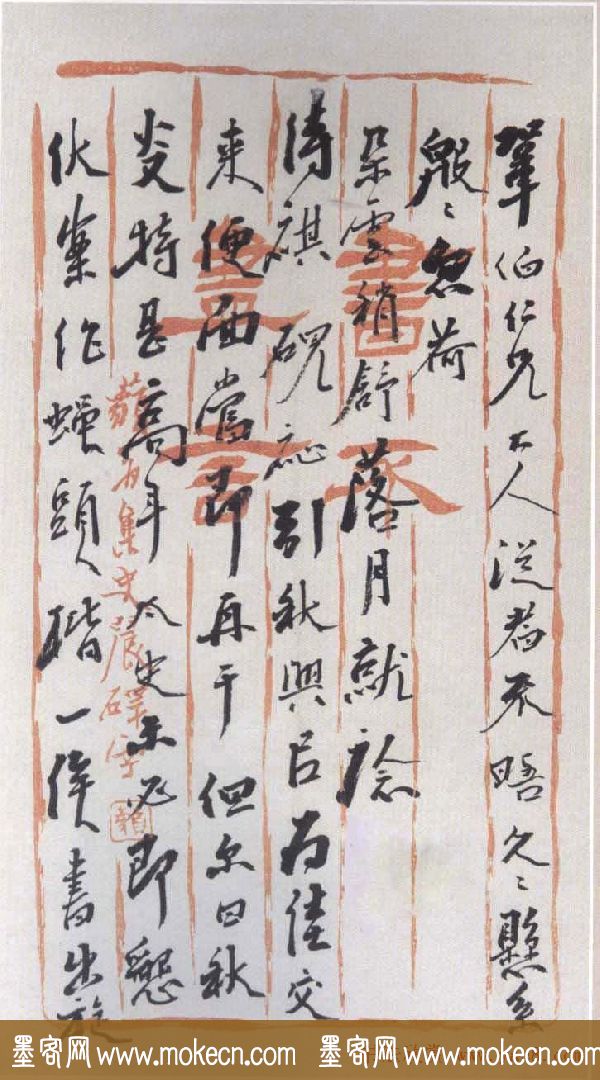 鞏伯仁兄大人從者不晤久〻懸系
殷〻忽荷
朵雲稍舒落月就諗
侍祺
引秋興
為佳交
來便面當即再干但尔日秋
炎特甚高年太史未必即懇
伏案作蠅頭楷一俟書出
墨客网 www.mokecn.com 墨客网 www.mokecn.com